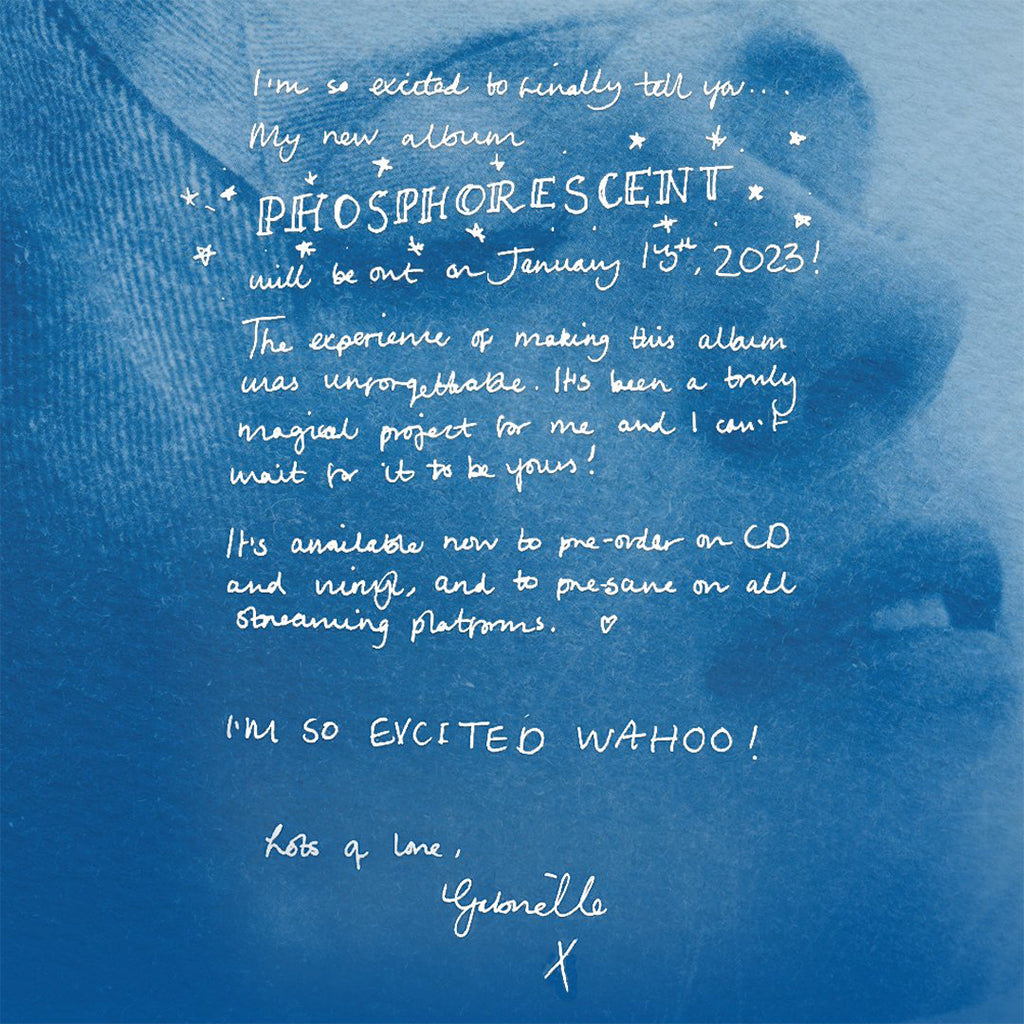 I'm so excited to finally tell you....
My new album
PHOSPHORESCENT
will be out on January 13th, 2023!
The experience of making this album
was unforgettable. It's been a truly
magical project for me and I can't
wait for it to be yours!
It's available now to pre-order on CD
and vinyl, and to pre-save on all
streaming platforms. ♡
I'M SO EXCITED WAHOO!
Lots of love,
Gabrielle
X